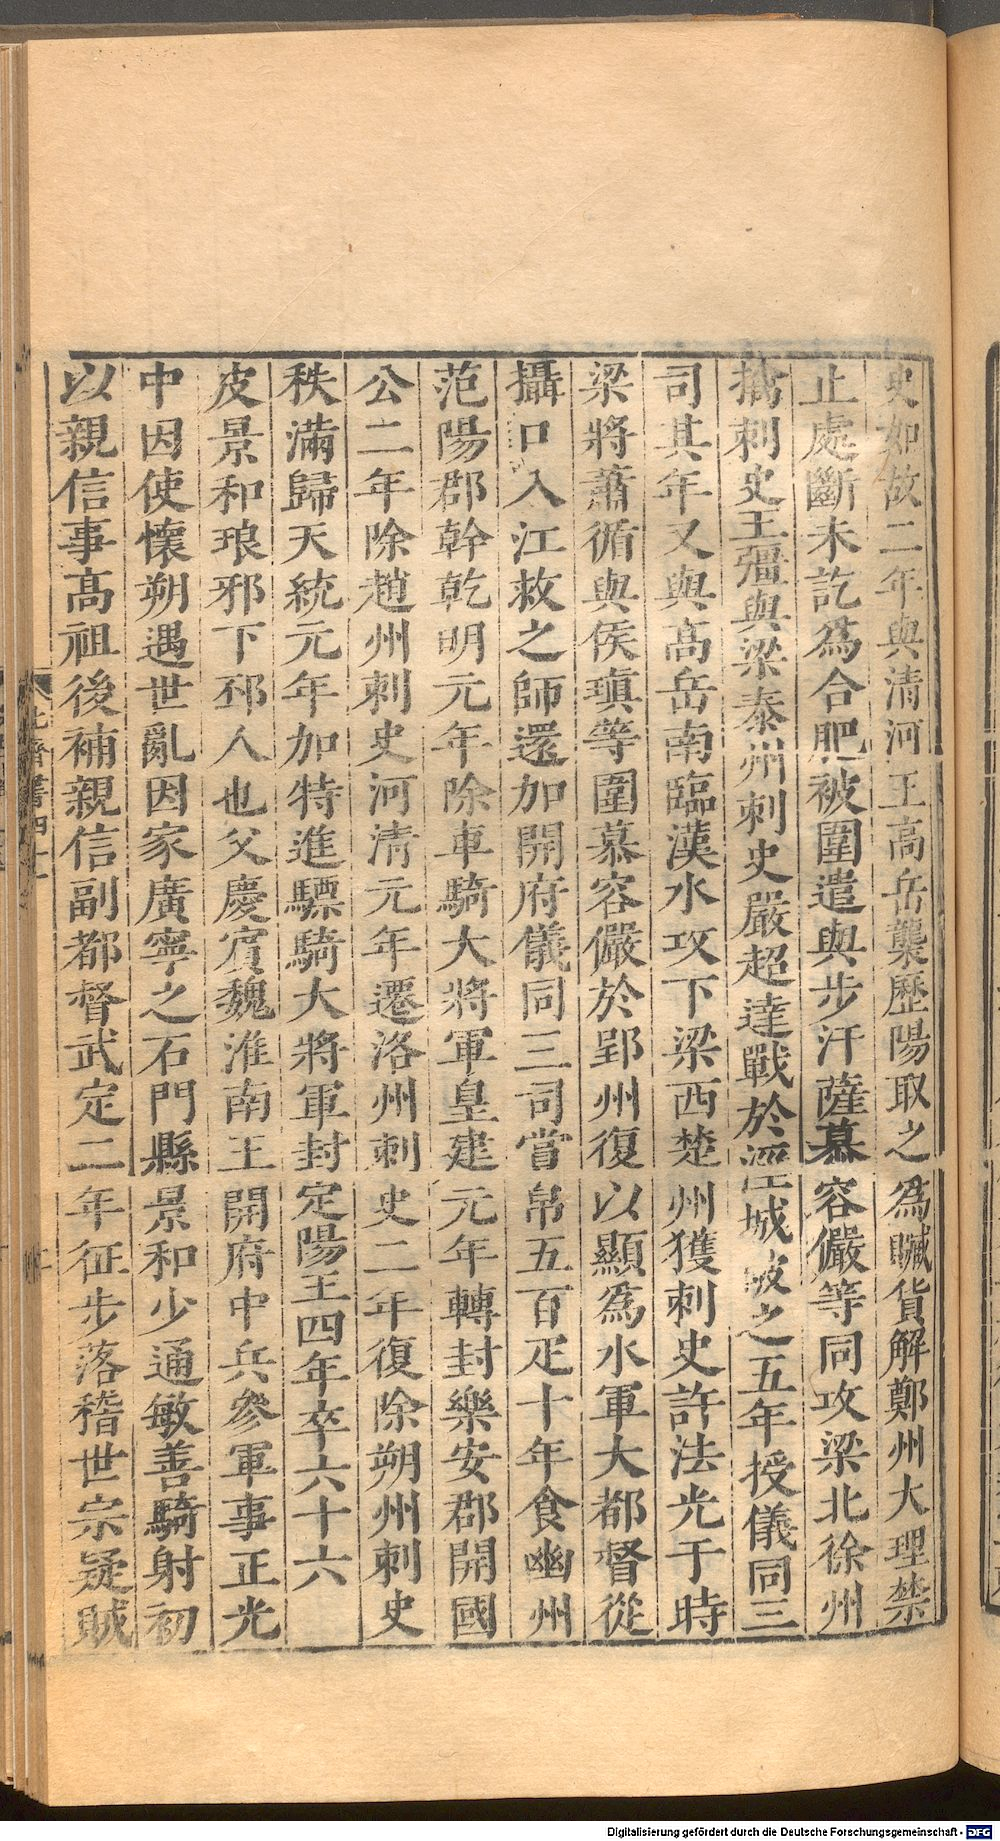 史如故二年與清河王高岳襲歷陽取之爲贓貨解鄭州大理禁
止處斷未訖爲合肥被圍遣與步汗薩慕容儼等同攻梁北徐州
擒刺史王彊與梁泰州刺史嚴超達戰於涇城破之五年授儀同三
司其年又與高岳南臨漢水攻下梁西楚州獲刺史許法光于時
梁將蕭循與侯瑱等圍慕容儼於郢州復以顯爲水軍大都督從
攝口入江救之師還加開府儀同三司當帛五百疋十年食幽州
范陽郡幹乾明元年除車騎大將軍皇建元年轉封樂安郡開國
公二年除趙州刺史河清元年遷洛州刺史二年復除朔州刺史
秩滿歸天統元年加特進驃騎大將軍封定陽王四年卒六十六
皮景和琅邪下邳人也父慶賓魏淮南王開府中兵參軍事正光
中因使懷朔遇世亂因家廣寧之石門縣景和少通敏善騎射初
以親信事高祖後補親信副都督武定二年征步落稽世宗疑賊
北齊書四十一
Digitalisierung gefördert durch die Deutsche Forschungsgemeinschaft - DFG